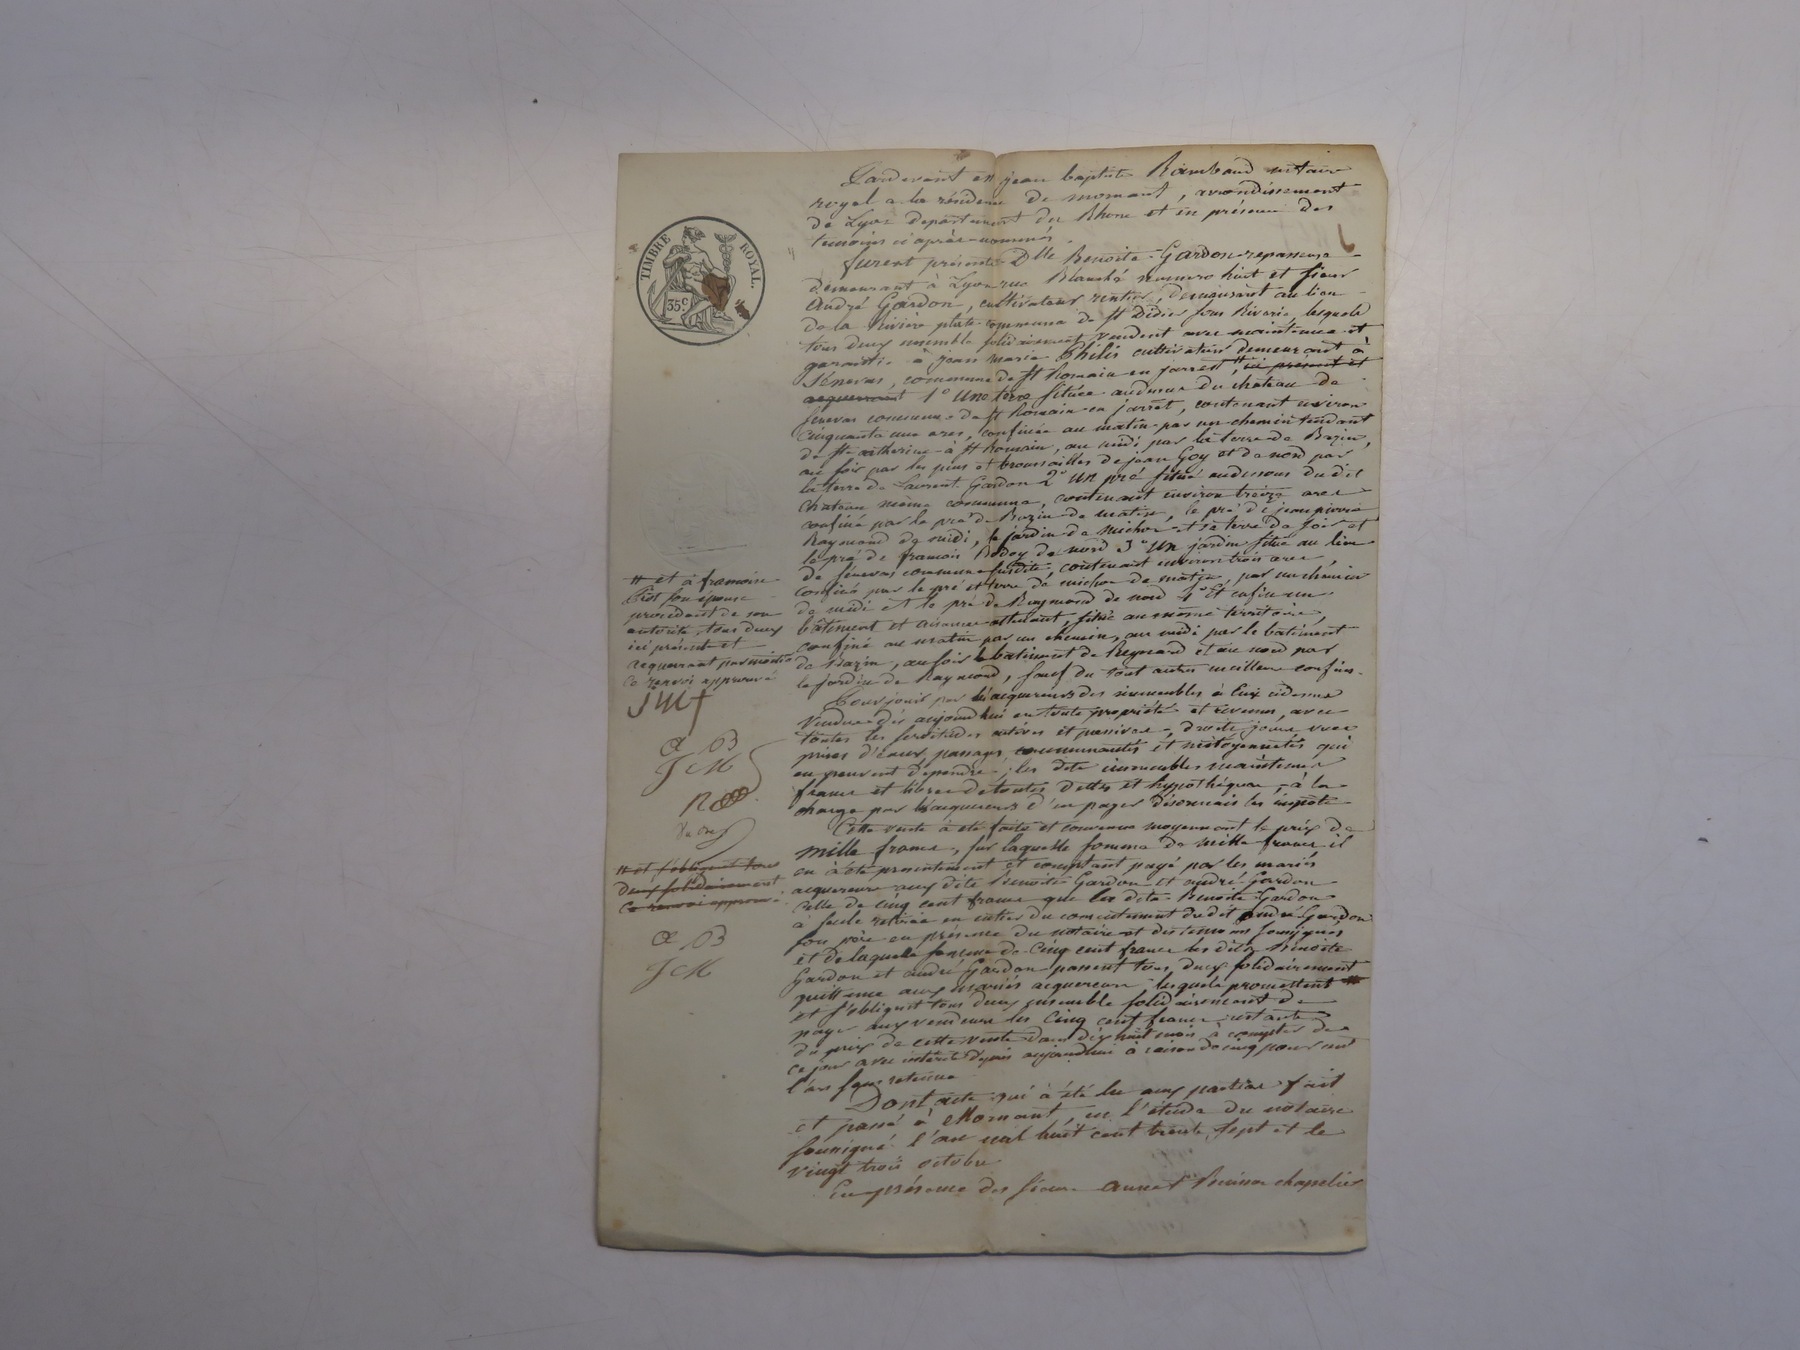 TIMBRE ROYAL.
35 c.
Pardevant Me jean baptiste Raimbaud notaire
royal a la résidence de mornant, arrondissement
de Lyon département du Rhone et en présence des
temoins ci après nommés.
furent présents Dlle Benoite Gardon repasseuse
demeurant à Lyon rue Blanche numero huit et sieur
André Gardon, cultivateur rentier, demeurant au lieu
de la Rivière plate commune de St Didier sous Riverie, lesquels
tous deux ensemble solidairement vendent avec maintenue et
garantie à jean marie Philis cultivateur demeurant à
Sénevas, commune de St Romain en jarrest # ici présent et
acquerrant 1° Une terre située audessus du chateau de
senevas commune de St Romain en jarrêt, contenant environ
cinquante une ares, confinée au matin par un chemin tendant
de Ste catherine à St Romain, au midi par la terre de Bazin,
au soir par les pins et broussailles de jean Goy et de nord par
la terre de Laurent Gardon 2° Un pré situé audessous du dit
chateau même commune, contenant environ treize ares
confiné par le pré de Bazin de matin, le pré de jean pierre
Raymond de midi, le jardin de michon et sa terre de soir et
le pré de francois Bodoy de nord 3° Un jardin situé au lieu
de Sénevas commune susdite, contenant environ trois ares,
confiné par le pré et terre de michon de matin, par un chemin
de midi et le pré de Raymond de nord 4° Et enfin un
bâtiment et aisances attenant, situé au même territoire,
confiné au matin par un chemin, au midi par le batiment
de Bazin, au soir le batiment de Reynard et au nord par
le jardin de Raymond, sauf du tout autres meilleurs confins.
Pour jouir par les acquereurs des immeubles à Eux cidessus
vendus dès aujourd'hui en toute propriété et revenus, avec
toutes les servitudes actives et passives, droits jours vues
prises d'eaux, passages communautés et mitoyennetés qui
en peuvent dependre; les dits immeubles maintenus
francs et libres de toutes dettes et hypothéques, à la
charge par les acquereurs d'en payer désormais les impôts
Cette vente à été faite et convenue moyennant le prix de
mille francs, sur laquelle somme de mille francs il
en à été presentement et comptant payé par les mariés
acquereurs aux dits Benoite Gardon et andré Gardon
celle de cinq cent francs que la dite Benoite Gardon
à seule retirée en entier du consentement du dit andré Gardon
son père en présence du notaire et des temoins soussignés
et de laquelle somme de Cinq cent francs les dits Benoite
Gardon et andré Gardon passent tous deux solidairement
quittance aux mariés acquereurs lesquels promettent #
et s'obligent tous deux ensemble solidairement de
payer aux vendeurs les cinq cent francs restants
du prix de cette vente dans dix huit mois à compter de
ce jour avec intérêt depuis aujourd'hui à raison de cinq pour cent
l'an sans retenue
Dont acte qui à été lu aux parties fait
et passé à Mornant, en l'étude du notaire
soussigné l'an mil huit cent trente sept et le
vingt trois octobre
En présence des sieurs annet Buisson chapelier
# et à francoise
Piot son épouse
procédant de son
autorité, tous deux
ici présent et
acquerrant par moitié
ce renvoi approuvé
JM
B
JM
# et s'obligent tous
deux solidairement
ce renvoi approuvé
B
JM